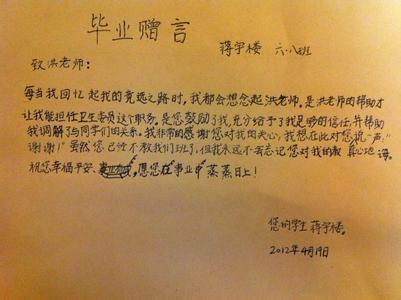 毕业赠言
蒋宇楼 六.八班
致洪老师：
每当我回忆起我的竞选之路时，我都会想念起洪老师，是洪老师的帮助才
让我能担任卫生委员这个职务。是您鼓励了我，充分给予了我足够的信任，并帮助
我调解了与同学们的关系。我非常的感谢您对我的关心，我想在此对您说一声"
谢谢！"虽然您已经不教我们班了，但我永远不会忘记您对我的教 真心地 诲。
祝您幸福平安、愿您在事业中蒸蒸日上！
您的学生 蒋宇楼。
2012年4月19日